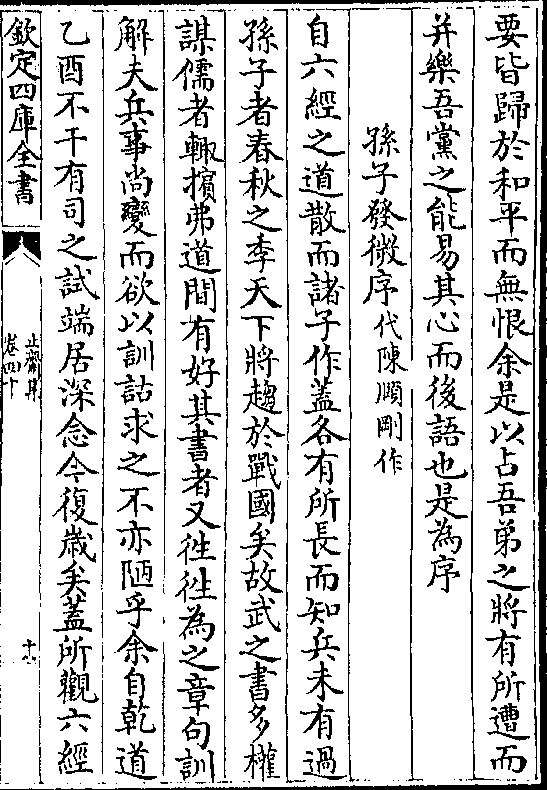 要皆歸於和平而無恨余是以占吾弟之將有所遭而
并樂吾黨之能易其心而後語也是為序
孫子發微序代陳順剛作
自六經之道散而諸子作蓋各有所長而知兵未有過
孫子者春秋之季天下將趨於戰國矣故武之書多權
謀儒者輙擯弗道間有好其書者又徃徃為之章句訓
解夫兵事尚變而欲以訓詁求之不亦陋乎余自乾道
乙酉不干有司之試端居深念今復歲矣蓋所觀六經
欽定四庫全書
止齋集
卷四十